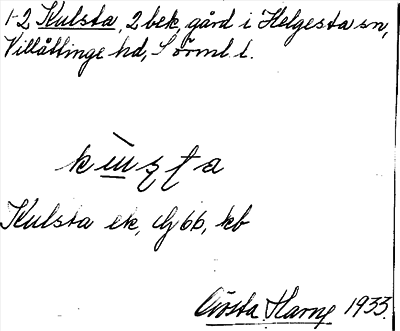 1-2 Kulsta, 2 bek, gård i Helgesta sn,
Villåttinge hd, Sörml. l.
Kulsta ek, GJ bb, kb
Gösta Harne 1933.